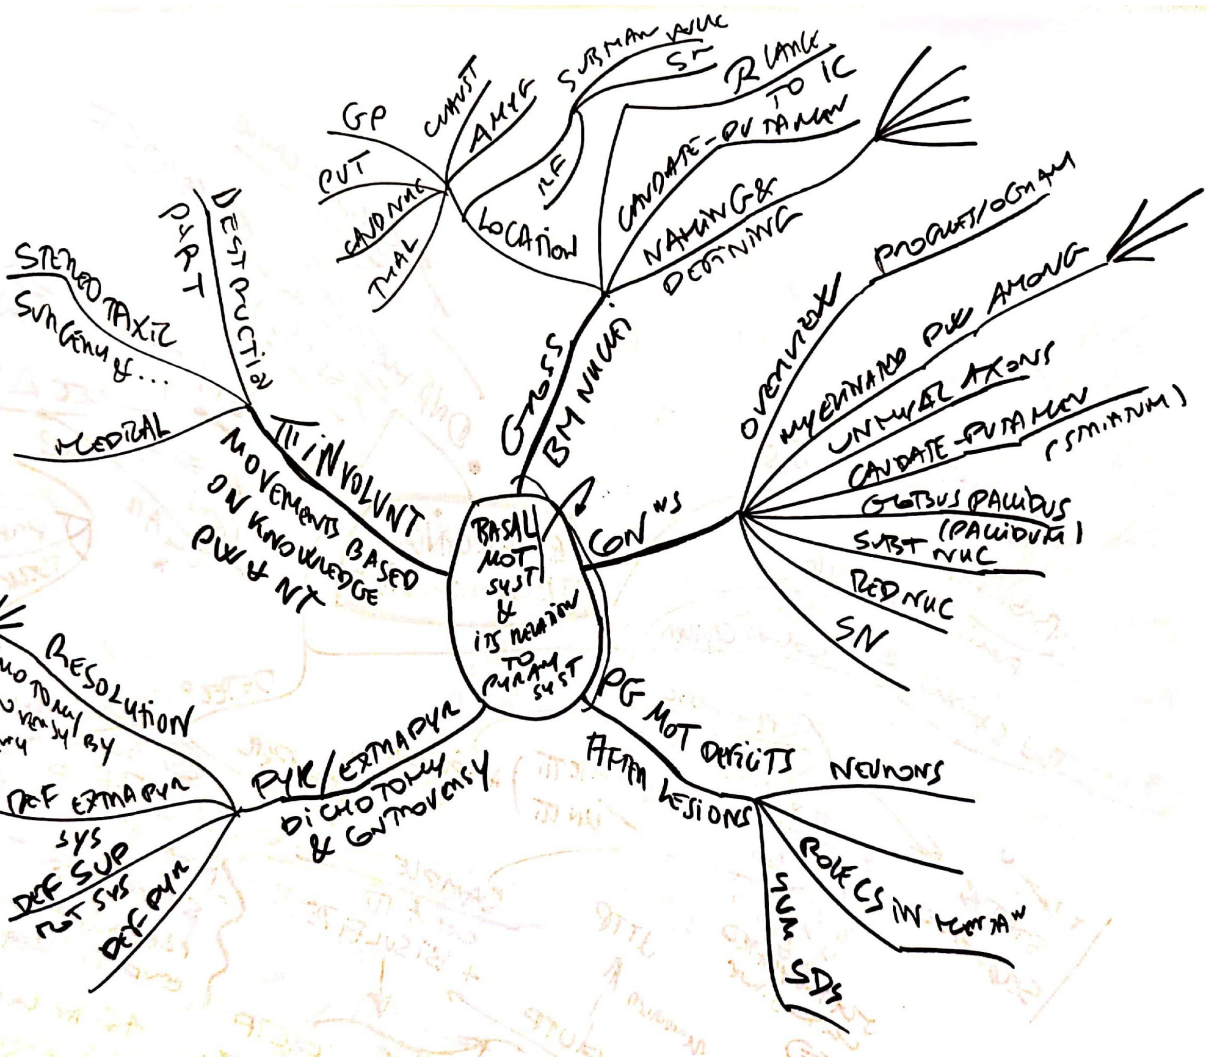 BASAL
MOT
SYST
&
ITS RELATION
TO
PYRAM
SYST
GROSS
BM NUCLEI
LOCATION
GP
PUT
CAUDNUC
THAL
CLAUST
AMYG
RF
SUBMAN NUC
SN
R LANCE
TO IC
CAUDATE-PUTAMEN
NAMING &
DEFINING
CON NS
OVERVIEW
MYELINATED PW AMONG
UNMYEL AXONS
CAUDATE-PUTAMEN
(STRIATUM)
GLOBUS PALLIDUS
(PALLIDUM)
SUBT NUC
RED NUC
SN
PG MOT DEFICITS
AFTER LESIONS
NEURONS
ROLE CS IN
SUM
SDS
PYR/EXTRAPYR
DICHOTOMY
& CONTROVERSY
RESOLUTION
BY
DEF EXTRAPYR
SYS
DEF SUP
MOT SYS
DEF PYR
INVOLUNT
MOVEMENTS BASED
ON KNOWLEDGE
PW & NT
DESTRUCTION
PART
STEREOTAXIC
SURGERY & ...
MEDICAL